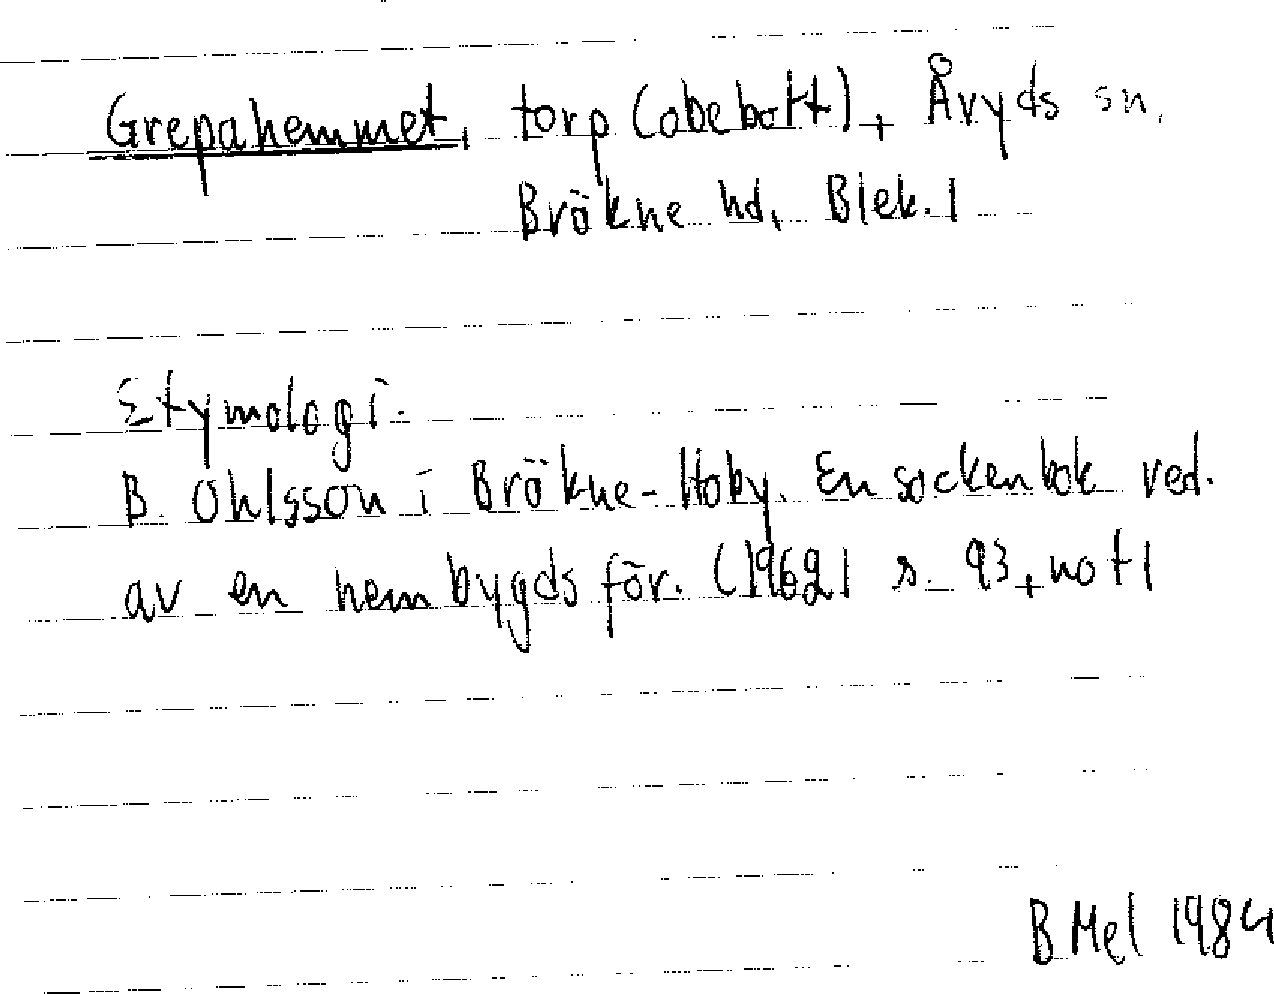 Grepahemmet, torp (obebott), Åryds sn,
Bräkne hd, Blek. l
Etymologi.
B. Ohlsson i Bräkne-Hoby. En sockenbok red.
av en hembygdsför. (1962) s. 93, not 1
B Mel 1984